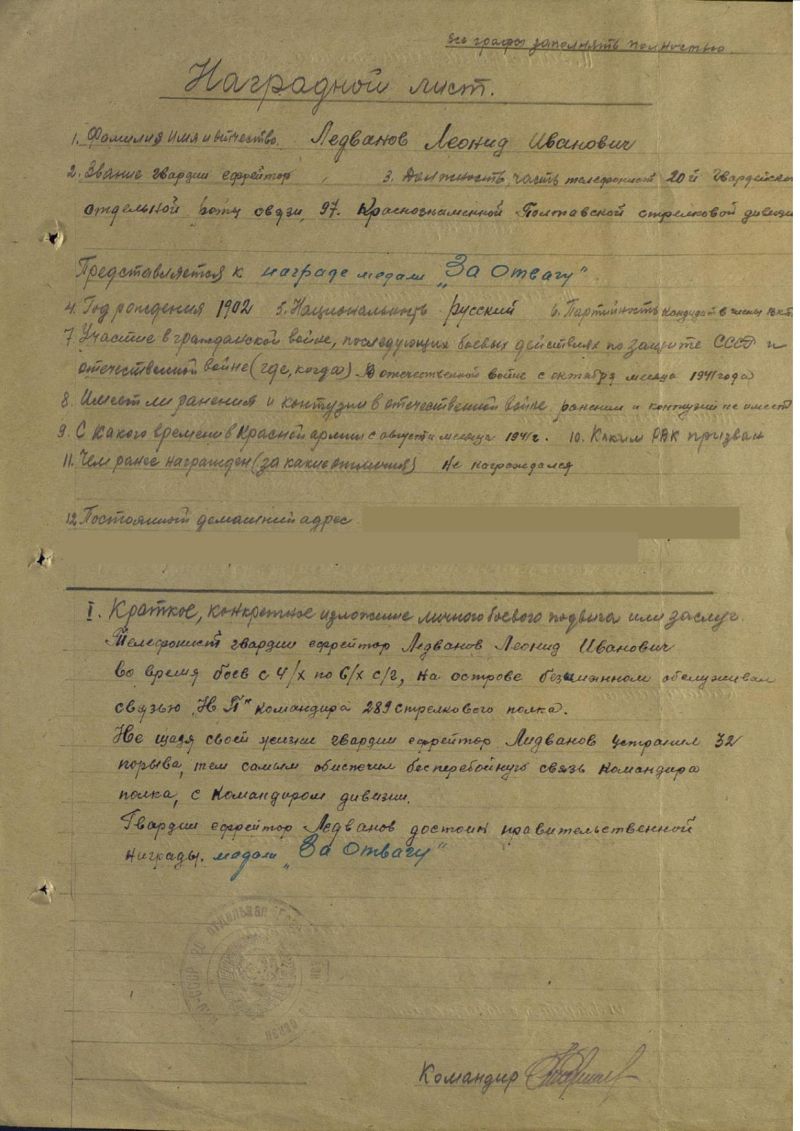 все графы заполнять полностью.
Наградной лист.
1. Фамилия имя и отчество. Ледванов Леонид Иванович
2. Звание гвардии ефрейтор, 3. Должность, часть телефонист 20й Гвардейской
отдельной роты связи, 97. Краснознаменной Полтавской стрелковой дивизии
Представляется к награде медали „За Отвагу"
4. Год рождения 1902 5. Национальность русский 6. Партийность кандидат в члены
7. Участие в гражданской войне, последующих боевых действиях по защите СССР и
отечественной войне (где, когда) В отечественной войне с октября месяца 1941 года
8. Имеет ли ранения и контузии в отечественной войне ранений и контузий не имеет
9. С какого времени в Красной армии с августа месяца 1941г. 10. Каким РВК призван
11. Чем ранее награжден (за какие отличия) Не награждался
12. Постоянный домашний адрес
I. Краткое, конкретное изложение личного боевого подвига или заслуг.
Телефонист гвардии ефрейтор Ледванов Леонид Иванович
во время боев с 4/х по 6/х с/г, на острове безимянном обслуживал
связью „НП" командира 289 стрелкового полка.
Не щадя своей жизни гвардии ефрейтор Лидванов устранил 32
порыва, тем самым обиспечил бесперебойную связь командира
полка, с командиром дивизии.
Гвардии ефрейтор Ледванов достоин правительственной
награды. медали „За Отвагу"
Командир